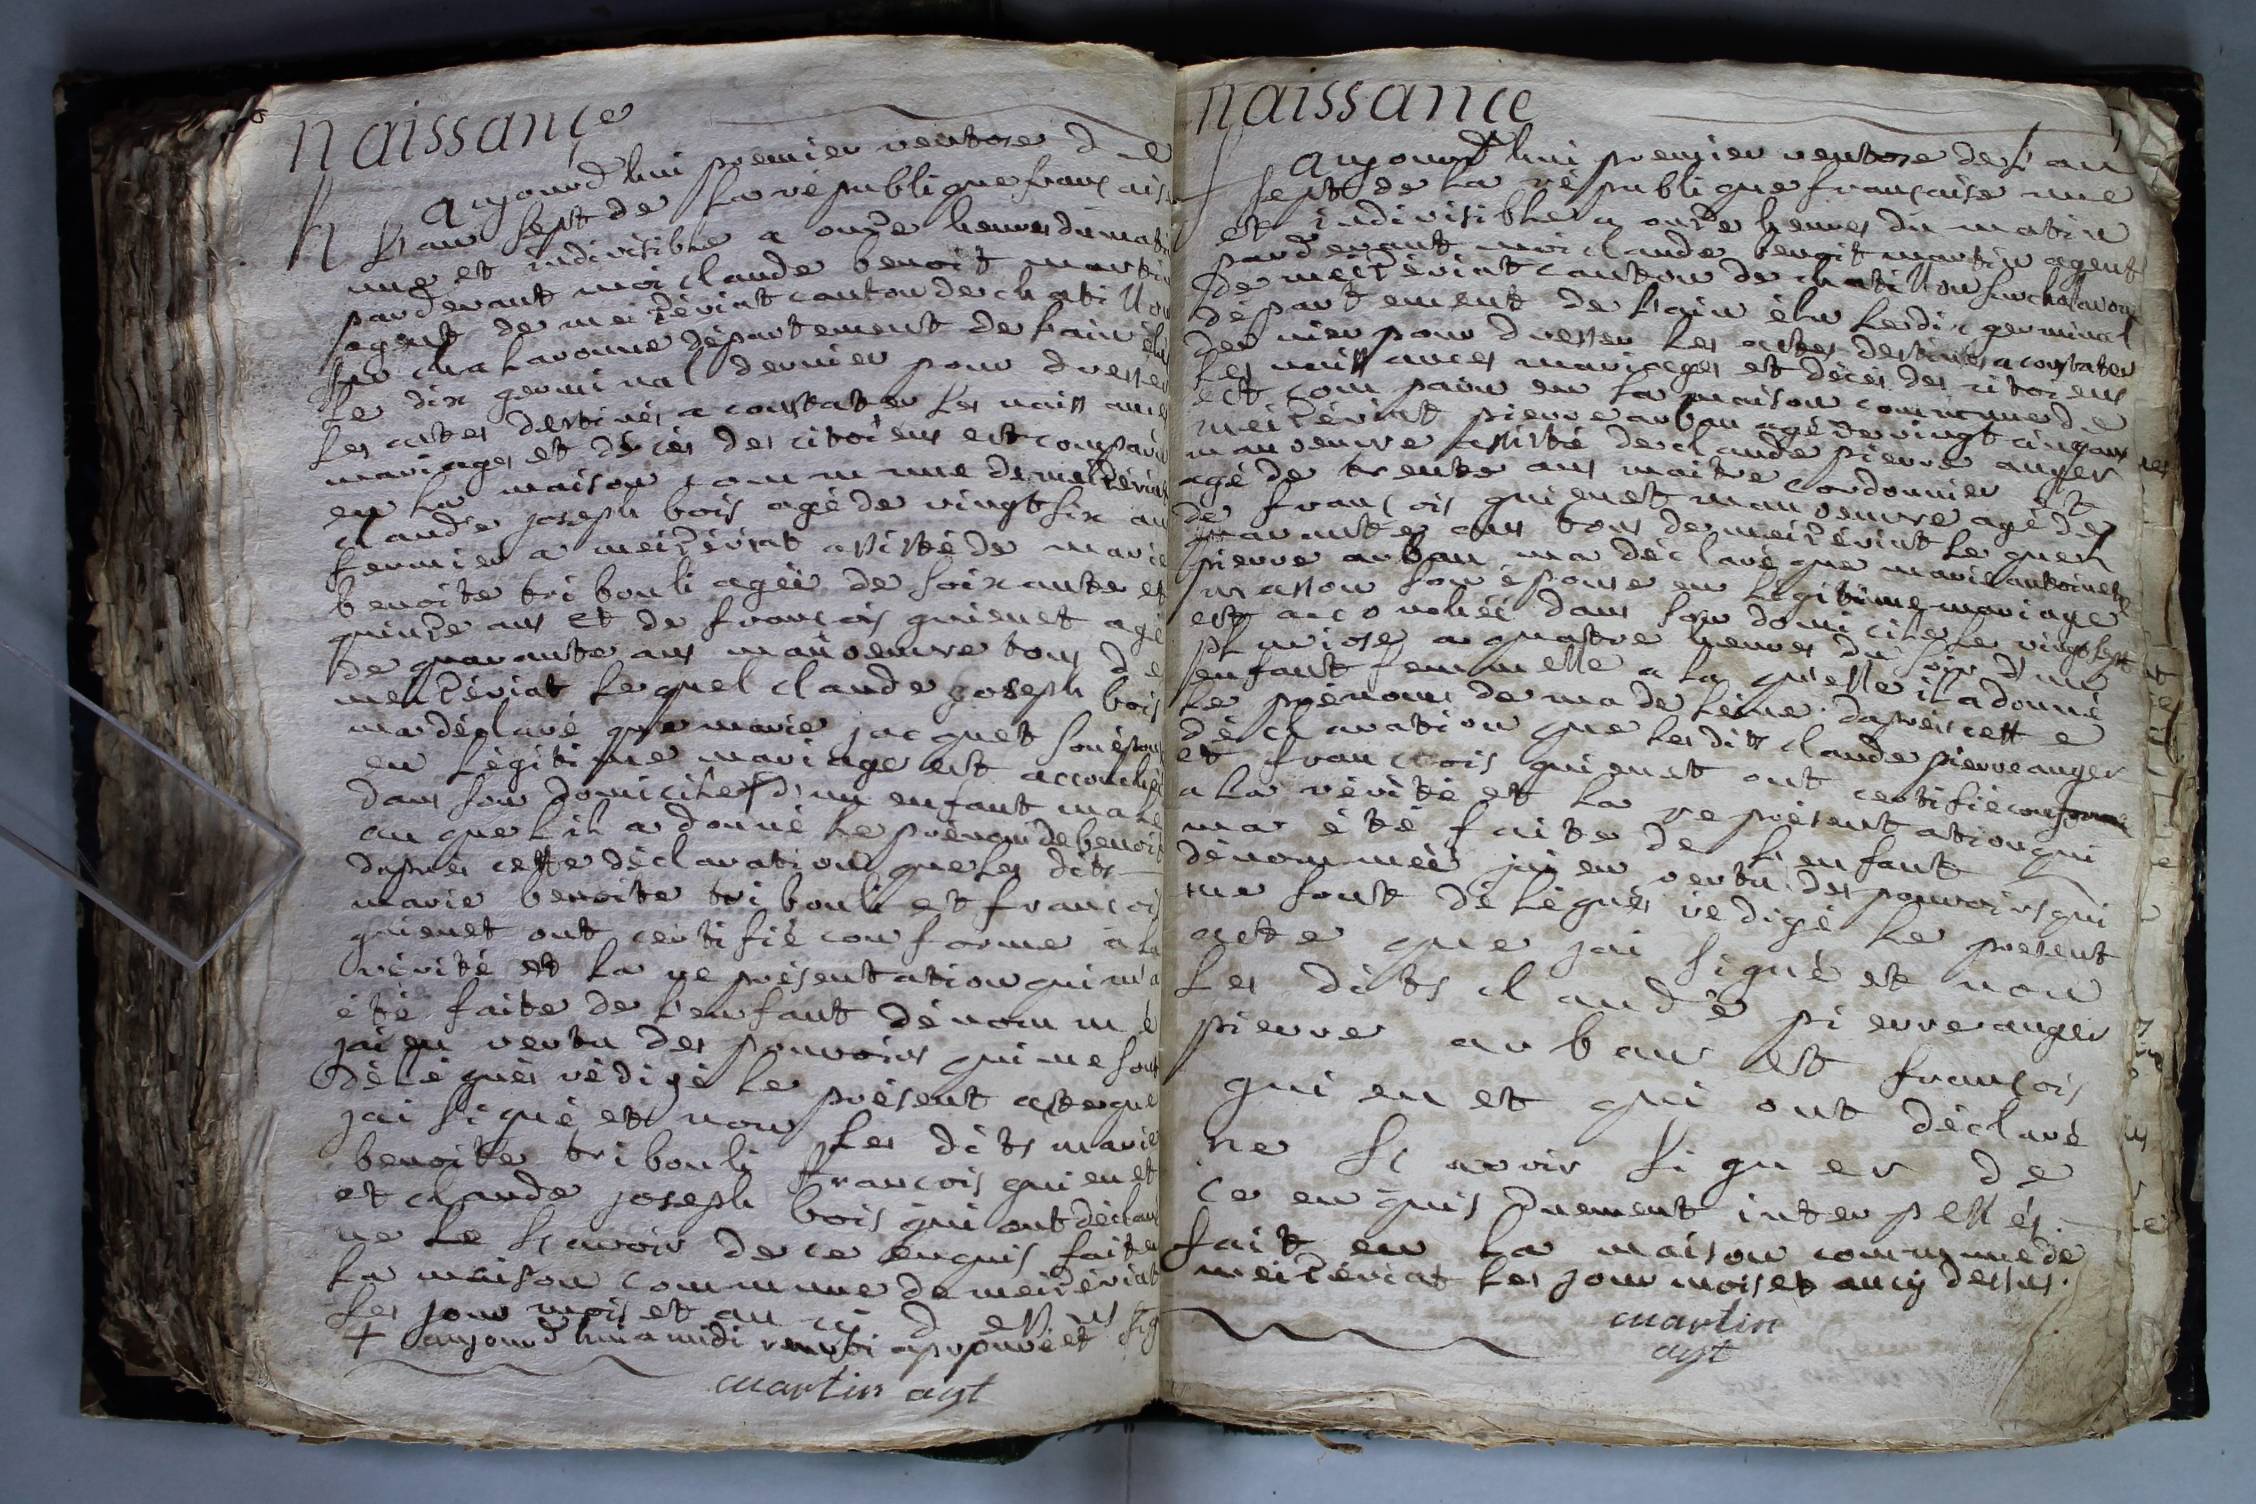 naissance
aujourd'hui premier ventose de
L'an sept de La république français
une et indivisible a onze heures du mati
pardevant moi claude benoit martin
agent de meizériat canton de chatillon
sur chalaronne département de L'ain élu
Le dix germinal dernier pour dresser
Les actes destinés a constater Les naissances
mariages et décès des citoïens est comparu
en La maison commune de meizériat
claude joseph bois agé de vingt six an
fermier a meizériat assisté de marie
benoite tribouli agéé de soixante et
quinze ans et de françois guienet agé
de quarante ans manoeuvre tous de
meizériat Lequel claude joseph bois
ma déclaré que marie jacquet son épouse
en Légitime mariage est accouchéé
dans son domicile + d'un enfant male
au quel il a donné Le prénom de benoit
daprès cette déclaration que Les dits
marie benoite tribouli et françois
guienet ont certifié conforme a La
vérité et La représentation qui m'a
été faite de L'enfant dénommé
jai en vertu des pouvoirs qui me sont
délégués rédigé Le présent acte que
jai signé et non Les dits marie
benoite tribouli françois guienet
et claude joseph bois qui ont déclaré
ne Le sçavoir de ce enquis fait en
La maison commune de meizériat
Les jour mois et an cy dessus
+ aujourd'hui a midi renvoi approuvé et sig
martin agt
naissance
aujourd'hui premier ventose de L'an
sept de La république française une
et indivisible a onze heures du matin
pardevant moi claude benoit martin agent
de meizériat canton de chatillon sur chalaronne
département de L'ain élu Le dix germinal
dernier pour dresser Les actes destinés a constater
Les naissances mariages et décès des citoiens
est comparu en La maison commune de
meizériat pierre arban agé de vingt cinq ans
manoeuvre assisté de claude pierre auger
agé de trente ans maitre cordonnier et
de françois guienet manoeuvre agé de
quarante ans tous de meizériat Lequel
pierre arban ma déclaré que marie antoinette
masson son épouse en Légitime mariage
est accouchéé dans son domicile Le vingt sept
pluviose a quatre heures du soir d'un
enfant femmelle a La qu'elle il a donné
Le prénom de madeleine. daprès cette
déclaration que Les dits claude pierre auger
et françois guienet ont certifié conforme
a La vérité et La représentation qui
ma été faite de L'enfant
dénomméé jai en vertu des pouvoirs qui
me sont délégués rédigé Le present
acte que jai signé et non
Les dits claude pierre auger
pierre arban et françois
guienet qui ont déclaré
ne sçavoir signer de
ce enquis duement interpellés.
fait en La maison commune de
meizériat Les jour mois et an cy dessus.
martin
agt